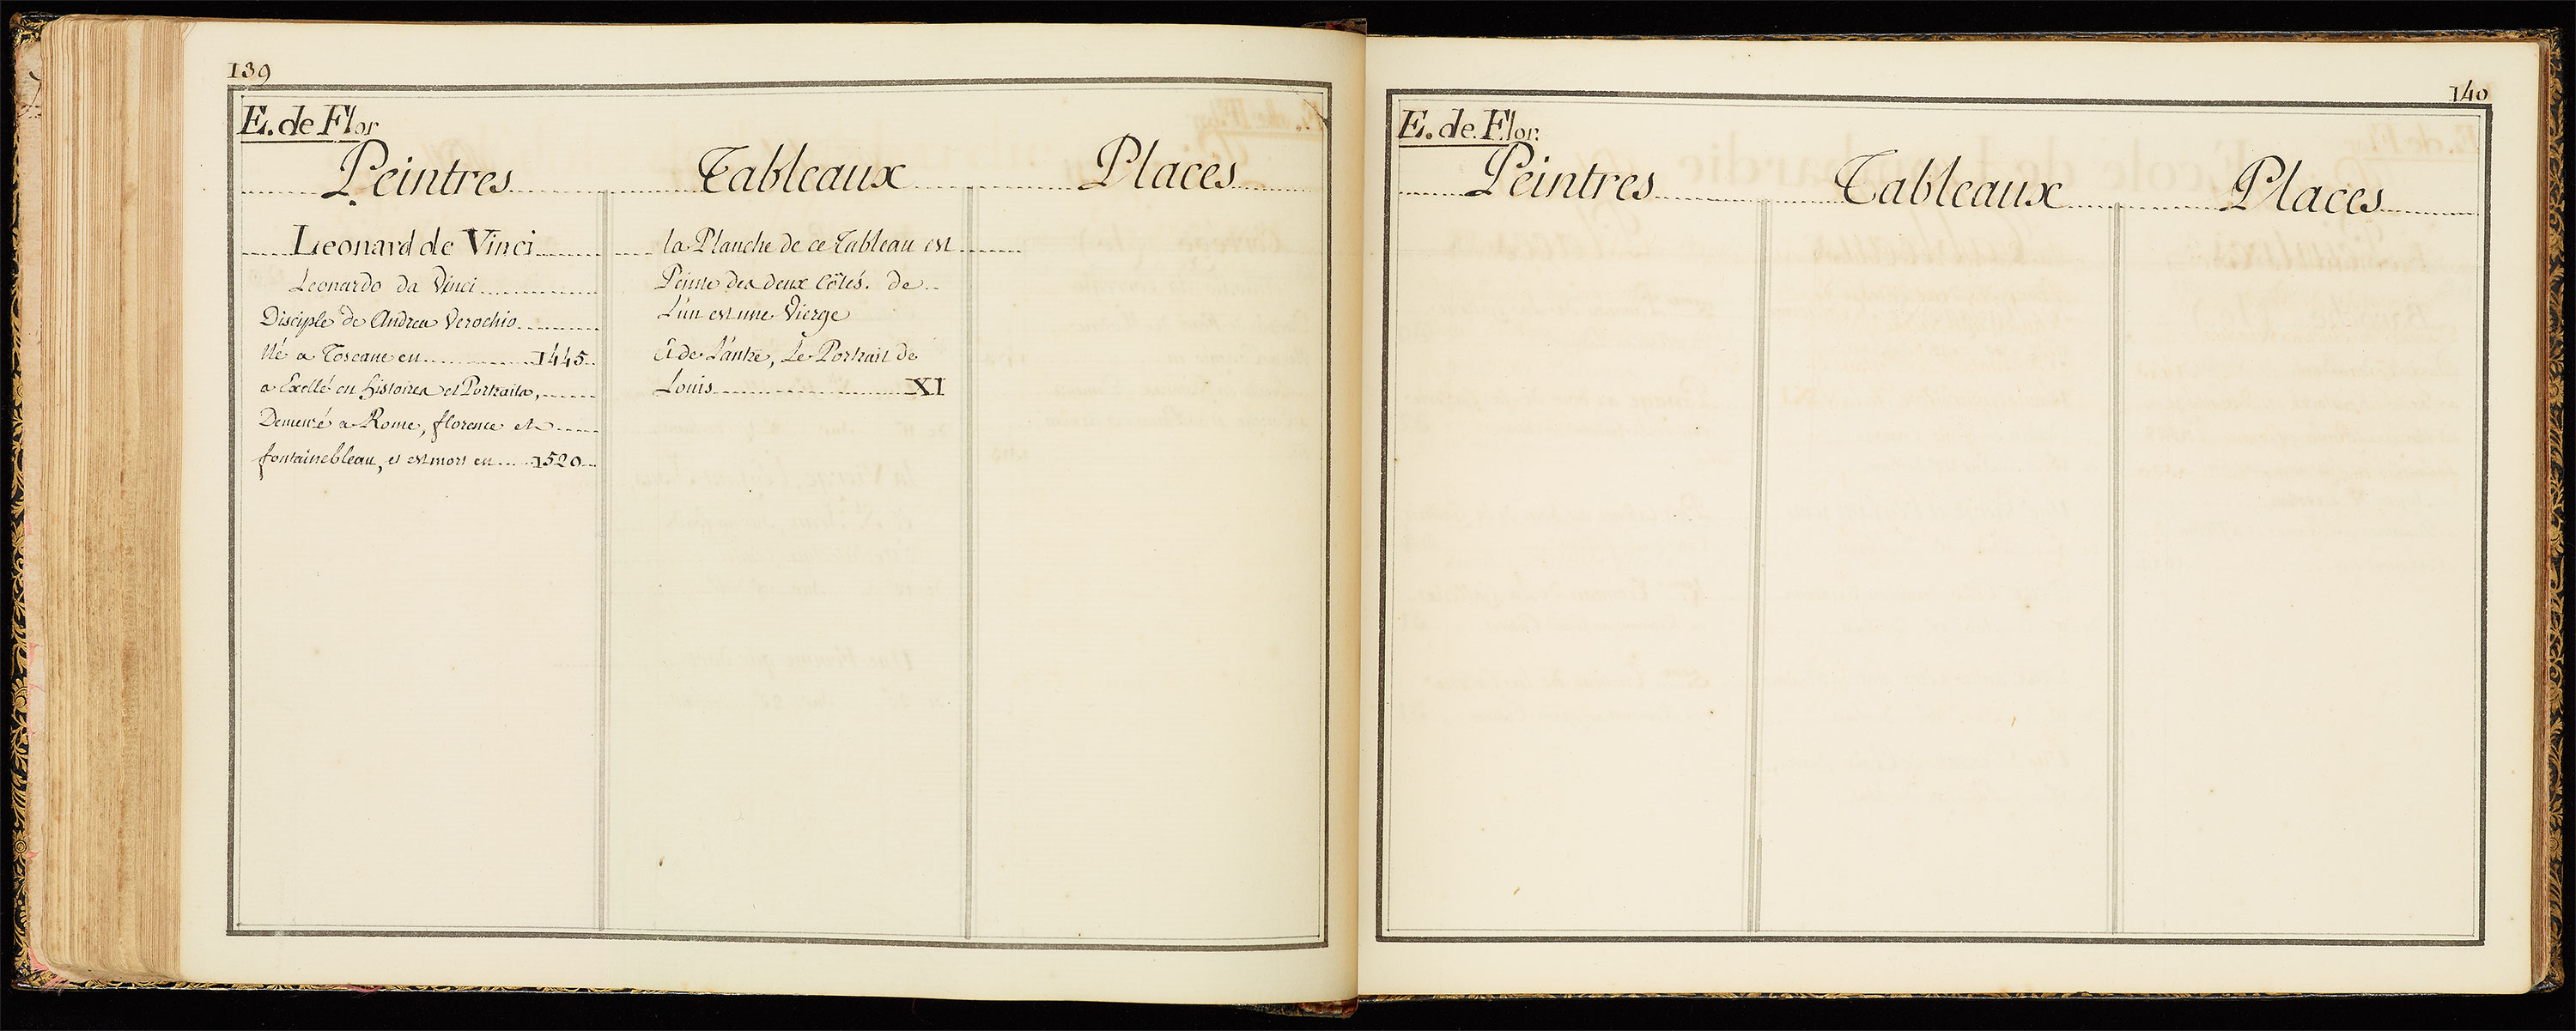 139
E. de Flor
Peintres Tableaux Places
Leonard de Vinci
Leonardo da Vinci
Disciple de Andrea Verochio
Né a Toscane en 1445
a Exellé en histoires et Portraits,
Demeuré a Rome, florence et
fontainebleau, et est mort en 1520
la Planche de ce Tableau est
Peinte des deux Côtés. de
L'un est une Vierge
et de L'autre, Le Portrait de
Louis XI
140
E. de Flor.
Peintres Tableaux Places